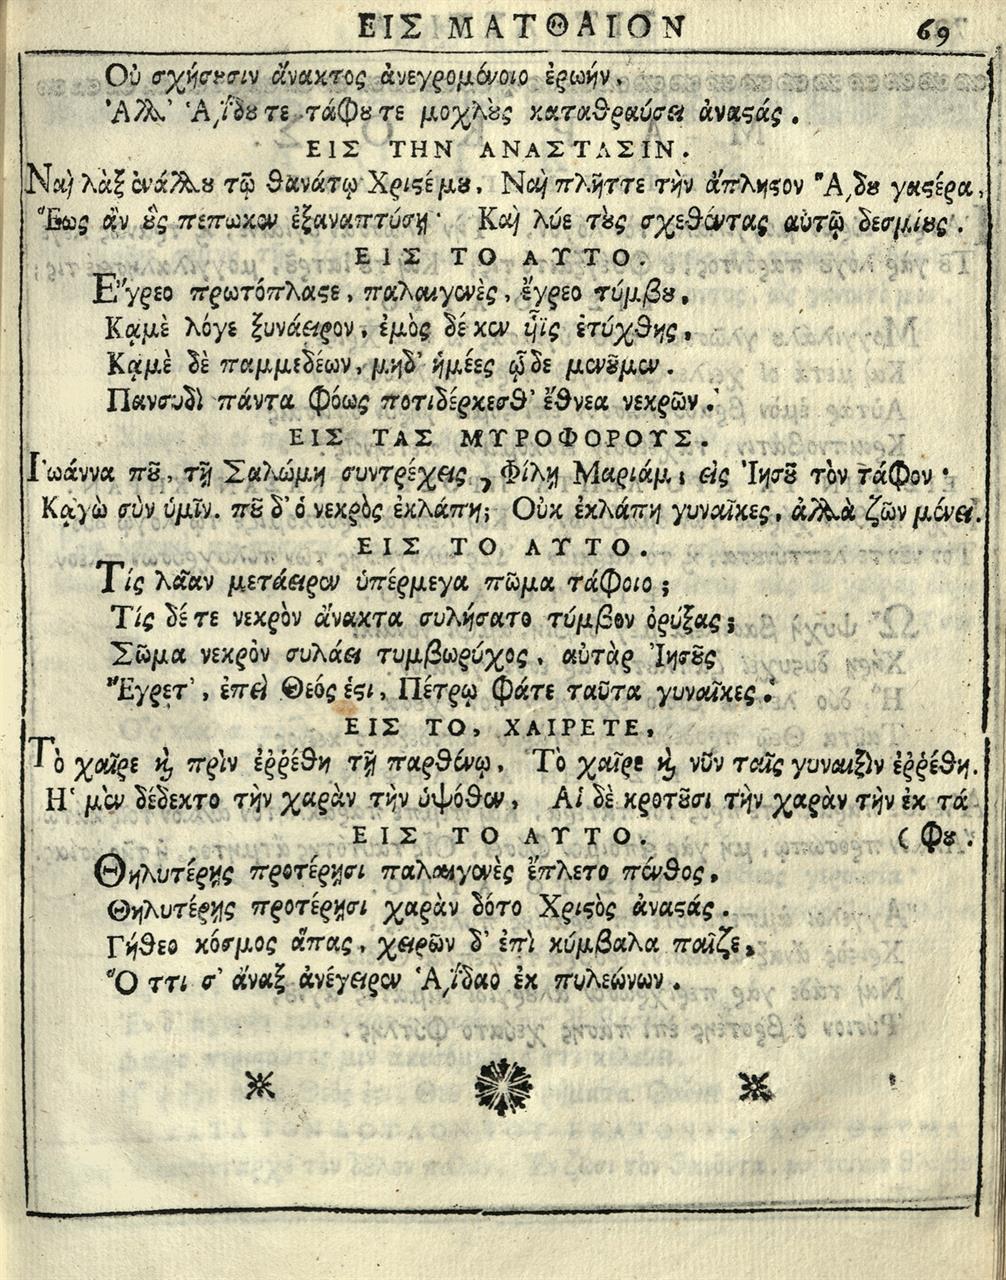 ΕΙΣ ΜΑΤΘΑΙΟΝ 69
Οὐ σχήσουσιν ἄνακτος ἀνεγρομένοιο ἐρωήν.
Ἀλλ' Ἀΐδου τε τάφου τε μοχλοὺς καταθραύσει ἀναστάς.
ΕΙΣ ΤΗΝ ΑΝΑΣΤΑΣΙΝ.
Ναὶ λὰξ ἐνάλλου τῷ θανάτῳ Χριστέ μου, Ναὶ πλῆττε τὴν ἄπληστον ᾍδου γαστέρα,
Ἕως ἂν οὓς πέπωκεν ἐξαναπτύσῃ· Καὶ λύε τοὺς σχεθέντας αὐτῷ δεσμίους.
ΕΙΣ ΤΟ ΑΥΤΟ.
Ἔγρεο πρωτόπλαστε, παλαιγενὲς, ἔγρεο τύμβου,
Κᾀμὲ λόγε ξυνάειρον, ἐμὸς δέ κεν ἧϊς ἐτύχθης,
Κᾀμὲ δὲ παμμεδέων, μηδ' ἡμέες ᾧδε μενοῦμεν.
Πανσυδὶ πάντα φόως ποτιδέρκεσθ' ἔθνεα νεκρῶν.
ΕΙΣ ΤΑΣ ΜΥΡΟΦΟΡΟΥΣ.
Ἰωάννα ποῦ, τῇ Σαλώμῃ συντρέχεις, Φίλη Μαριάμ; εἰς Ἰησοῦ τὸν τάφον·
Κᾀγὼ σὺν ὑμῖν. ποῦ δ' ὁ νεκρὸς ἐκλάπη; Οὐκ ἐκλάπη γυναῖκες, ἀλλὰ ζῶν μένει.
ΕΙΣ ΤΟ ΑΥΤΟ.
Τίς λᾶαν μετάειρεν ὑπέρμεγα πῶμα τάφοιο;
Τίς δέ τε νεκρὸν ἄνακτα συλήσατο τύμβον ὀρύξας;
Σῶμα νεκρὸν συλάει τυμβωρύχος, αὐτὰρ Ἰησοῦς
Ἔγρετ', ἐπεὶ Θεός ἐστι, Πέτρῳ φάτε ταῦτα γυναῖκες.
ΕΙΣ ΤΟ, ΧΑΙΡΕΤΕ,
Τὸ χαῖρε καὶ πρὶν ἐῤῥέθη τῇ παρθένῳ, Τὸ χαῖρε καὶ νῦν ταῖς γυναιξὶν ἐῤῥέθη.
Ἡ μὲν δέδεκτο τὴν χαρὰν τὴν ὑψόθεν, Αἱ δὲ κροτοῦσι τὴν χαρὰν τὴν ἐκ τά
ΕΙΣ ΤΟ ΑΥΤΟ. (φου.
Θηλυτέρῃς προτέρῃσι παλαιγενὲς ἔπλετο πένθος,
Θηλυτέρῃς προτέρῃσι χαρὰν δότο Χριστὸς ἀναστάς.
Γήθεο κόσμος ἅπας, χειρῶν δ' ἐπὶ κύμβαλα παῖζε,
Ὅ ττι σ' ἄναξ ἀνέγειρεν Ἀΐδαο ἐκ πυλεώνων.